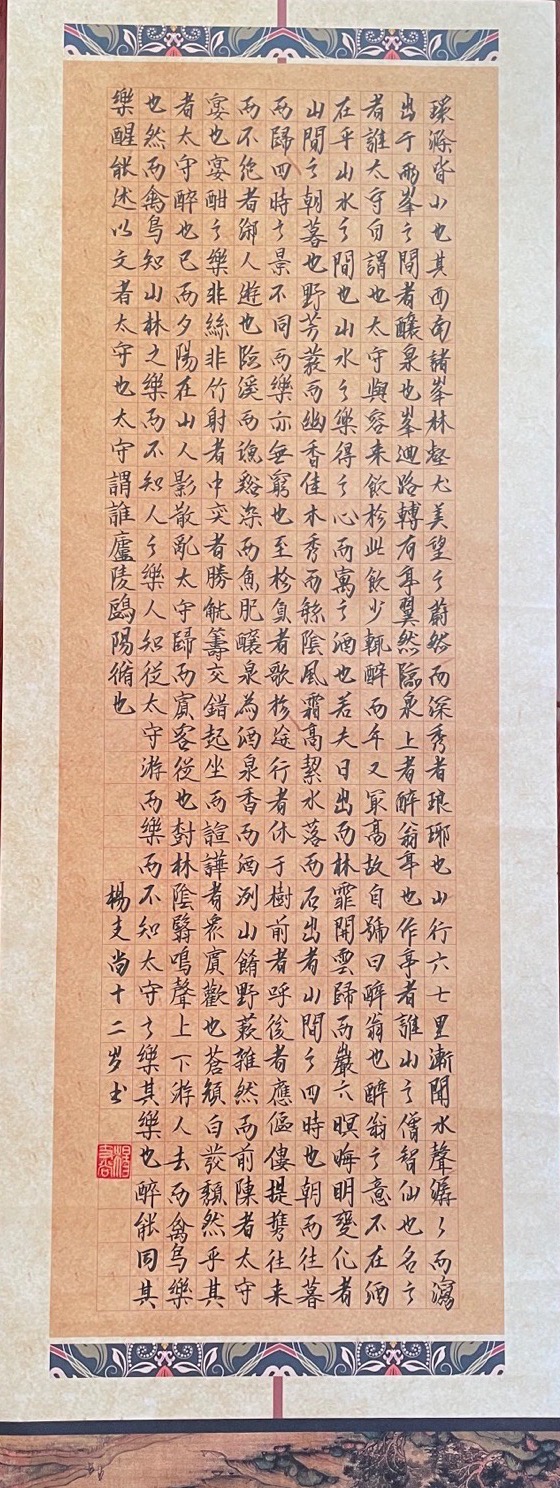 環滁皆山也其西南諸峯林壑尤美望之蔚然而深秀者琅琊也山行六七里漸聞水聲潺〻而瀉
出于兩峯之間者釀泉也峯迴路轉有亭翼然臨泉上者醉翁亭也作亭者誰山之僧智仙也名之
者誰太守自謂也太守與容来飲於此飲少輒醉而年又冣高故自號曰醉翁也醉翁之意不在酒
在乎山水之間也山水之樂得之心而寓之酒也若夫日出而林霏開雲歸而巖穴暝晦明變化者
山間之朝暮也野芳發而幽香佳木秀而繁陰風霜高絜水落而石出者山間之四時也朝而往暮
而歸四時之景不同而樂亦無窮也至於負者歌於途行者休于樹前者呼後者應傴僂提攜往来
而不絶者滁人遊也臨溪而漁谿深而魚肥釀泉為酒泉香而酒洌山餚野蔌雜然而前陳者太守
宴也宴酣之樂非絲非竹射者中奕者勝觥籌交錯起坐而諠譁者衆賓歡也蒼顏白髮頹然乎其
者太守醉也已而夕陽在山人影散亂太守歸而賓客從也樹林陰翳鳴聲上下游人去而禽鳥樂
也然而禽鳥知山林之樂而不知人之樂人知從太守游而樂而不知太守之樂其樂也醉能同其
樂醒能述以文者太守也太守謂誰廬陵歐陽脩也
楊支尚十二岁书